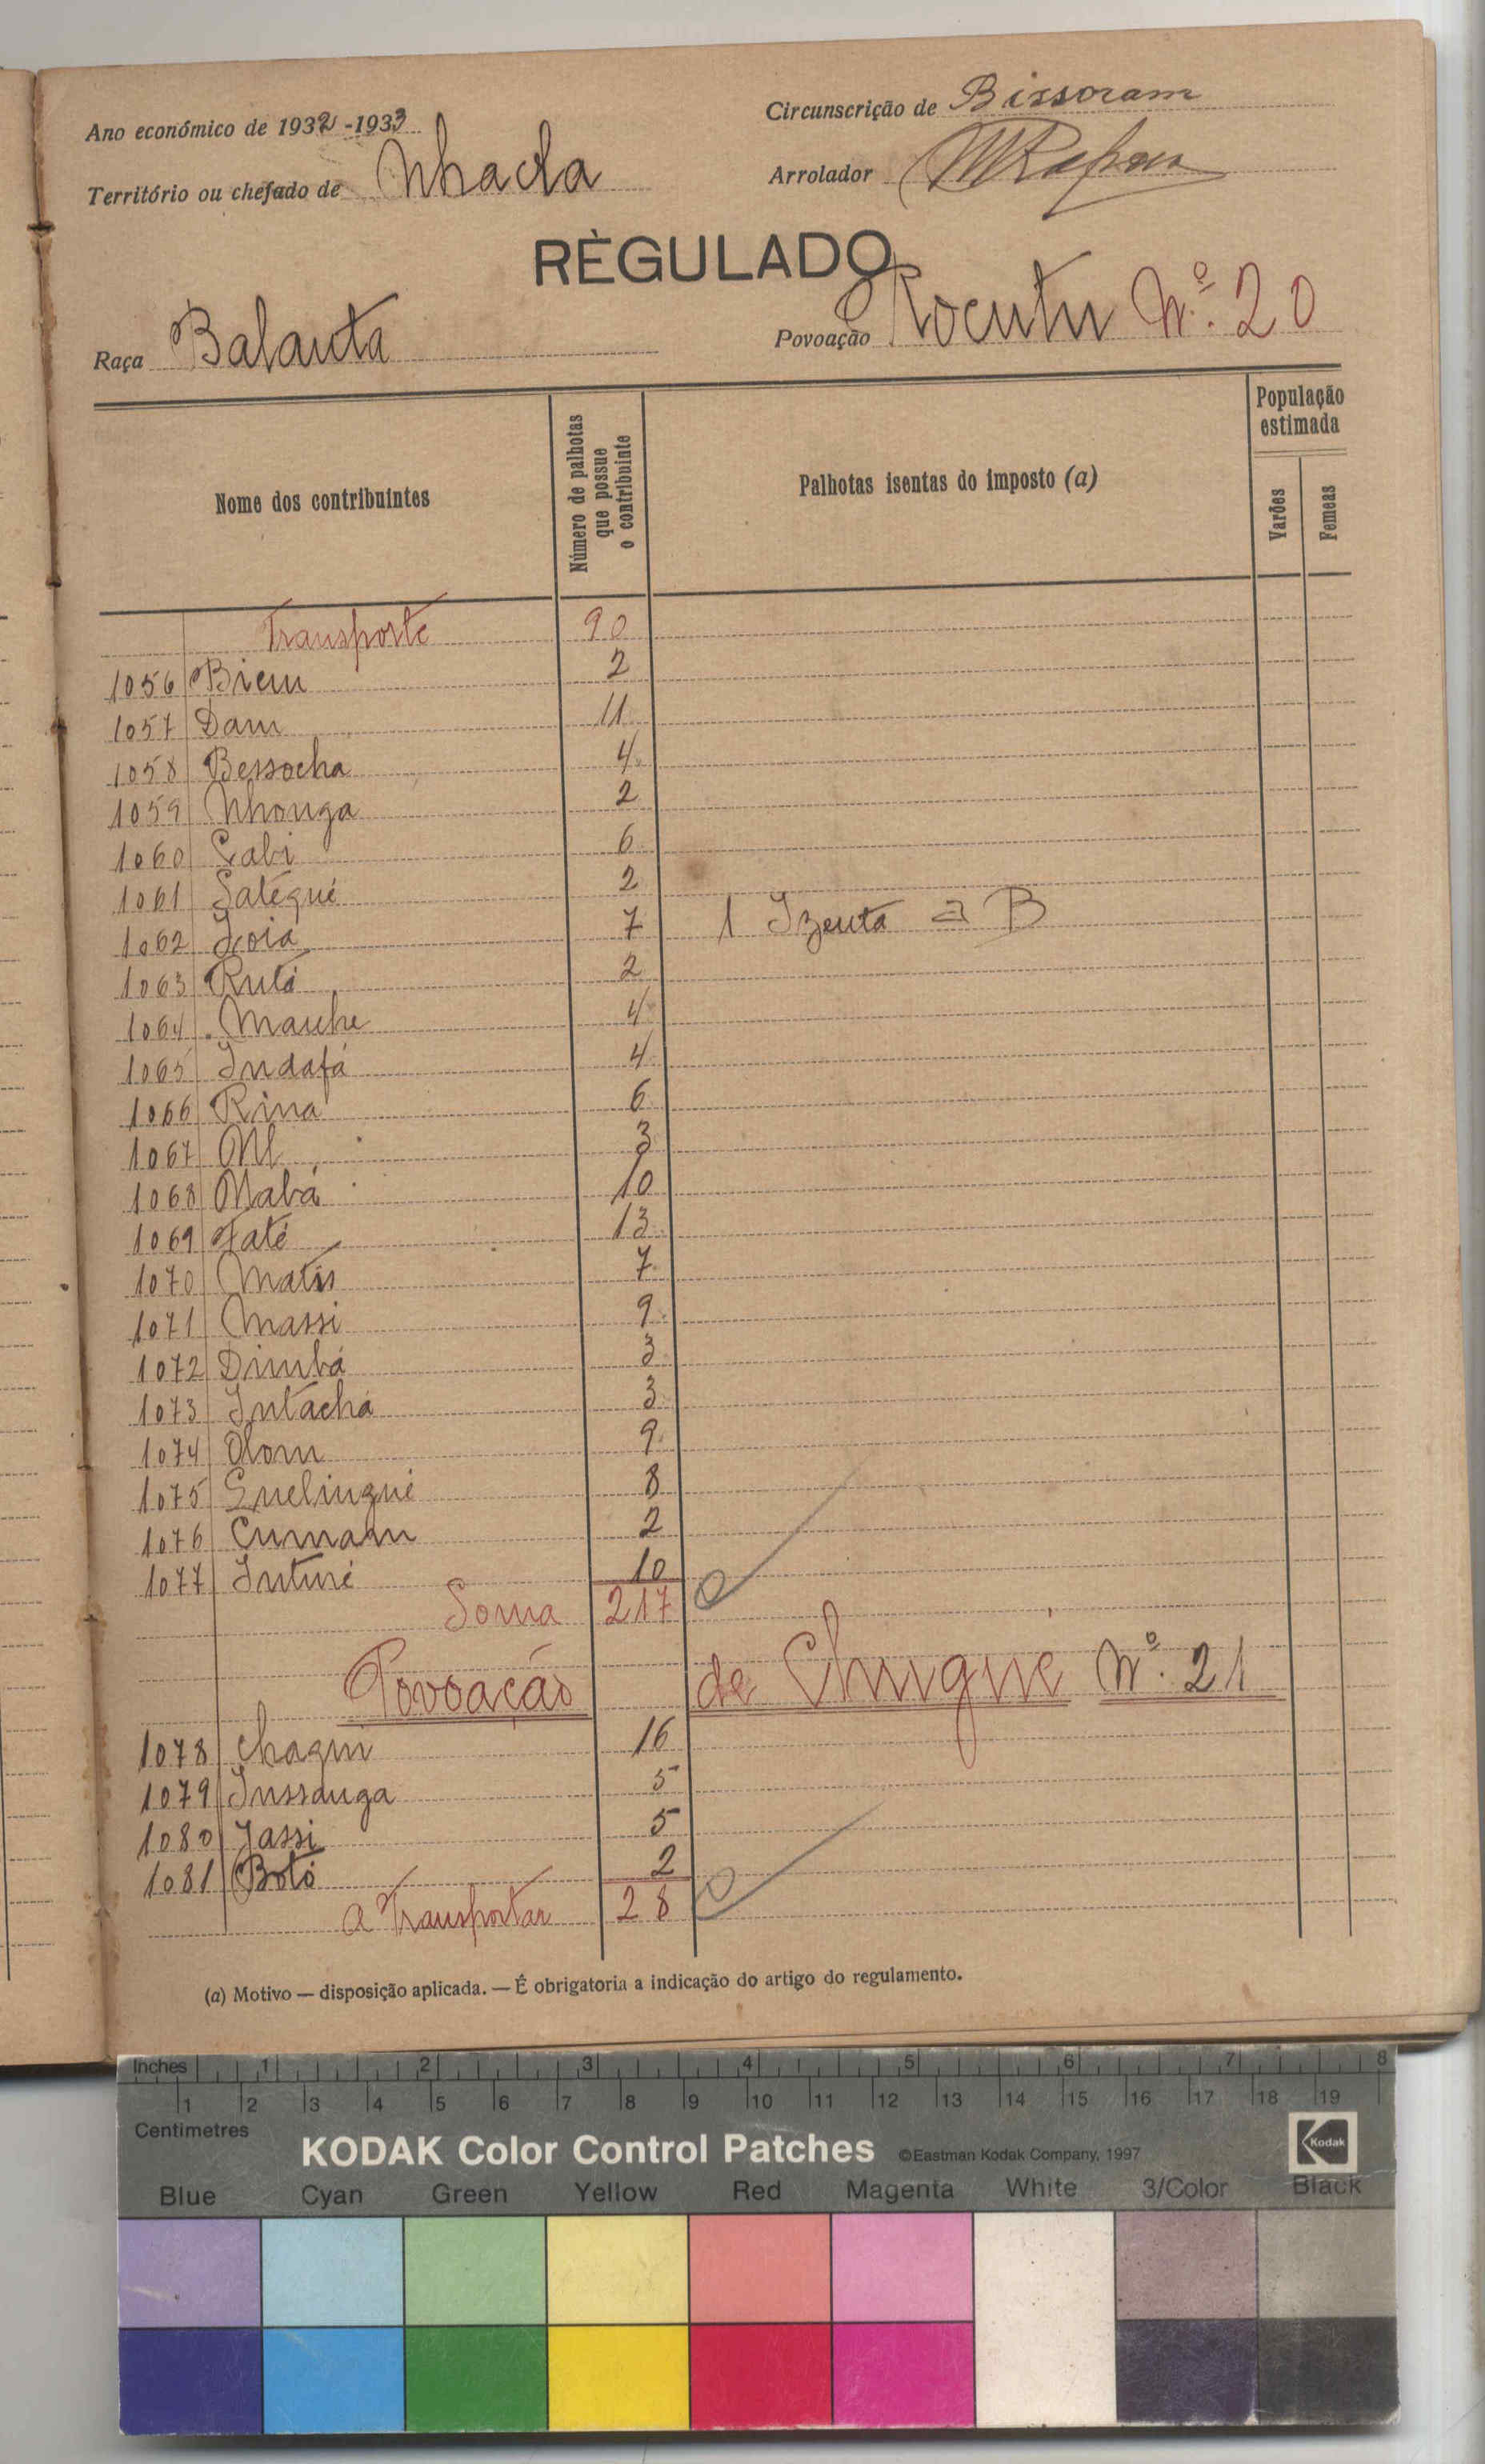 Ano económico de 1932-1933
Circunscrição de Bissoram
Território ou chefado de Nhacla
Arrolador
RÈGULADO
Raça Balanta
Povoação Rocutu Nº. 20
Nome dos contribuintes
Número de palhotas que possue o contribuinte
Palhotas isentas do imposto (a)
População estimada
Varões
Femeas
Transporte 90
1056 Biem 2
1057 Dam 11
1058 Bessocha 4
1059 Nhonga 2
1060 Cabi 6
1061 Satégué 2
1062 Joia 7 1 Izenta a B
1063 Rutá 2
1064 Manhe 4
1065 Indafá 4
1066 Rina 6
1067 3
1068 Mabá 10
1069 Faté 13
1070 Matis 7
1071 Massi 9
1072 Dimbá 3
1073 Intacha 3
1074 Olom 9
1075 Quelingué 8
1076 Cumam 2
1077 Inturé 10
Soma 217
Povoação de Chugué Nº. 21
1078 Chagm 16
1079 Inssanga 5
1080 Jassi 5
1081 Botó 2
A Transportar 28
(a) Motivo — disposição aplicada. — É obrigatoria a indicação do artigo do regulamento.
Inches 1 2 3 4 5 6 7 8
1 2 3 4 5 6 7 8 9 10 11 12 13 14 15 16 17 18 19
Centimetres
KODAK Color Control Patches ©Eastman Kodak Company, 1997 Kodak
Blue Cyan Green Yellow Red Magenta White 3/Color Black